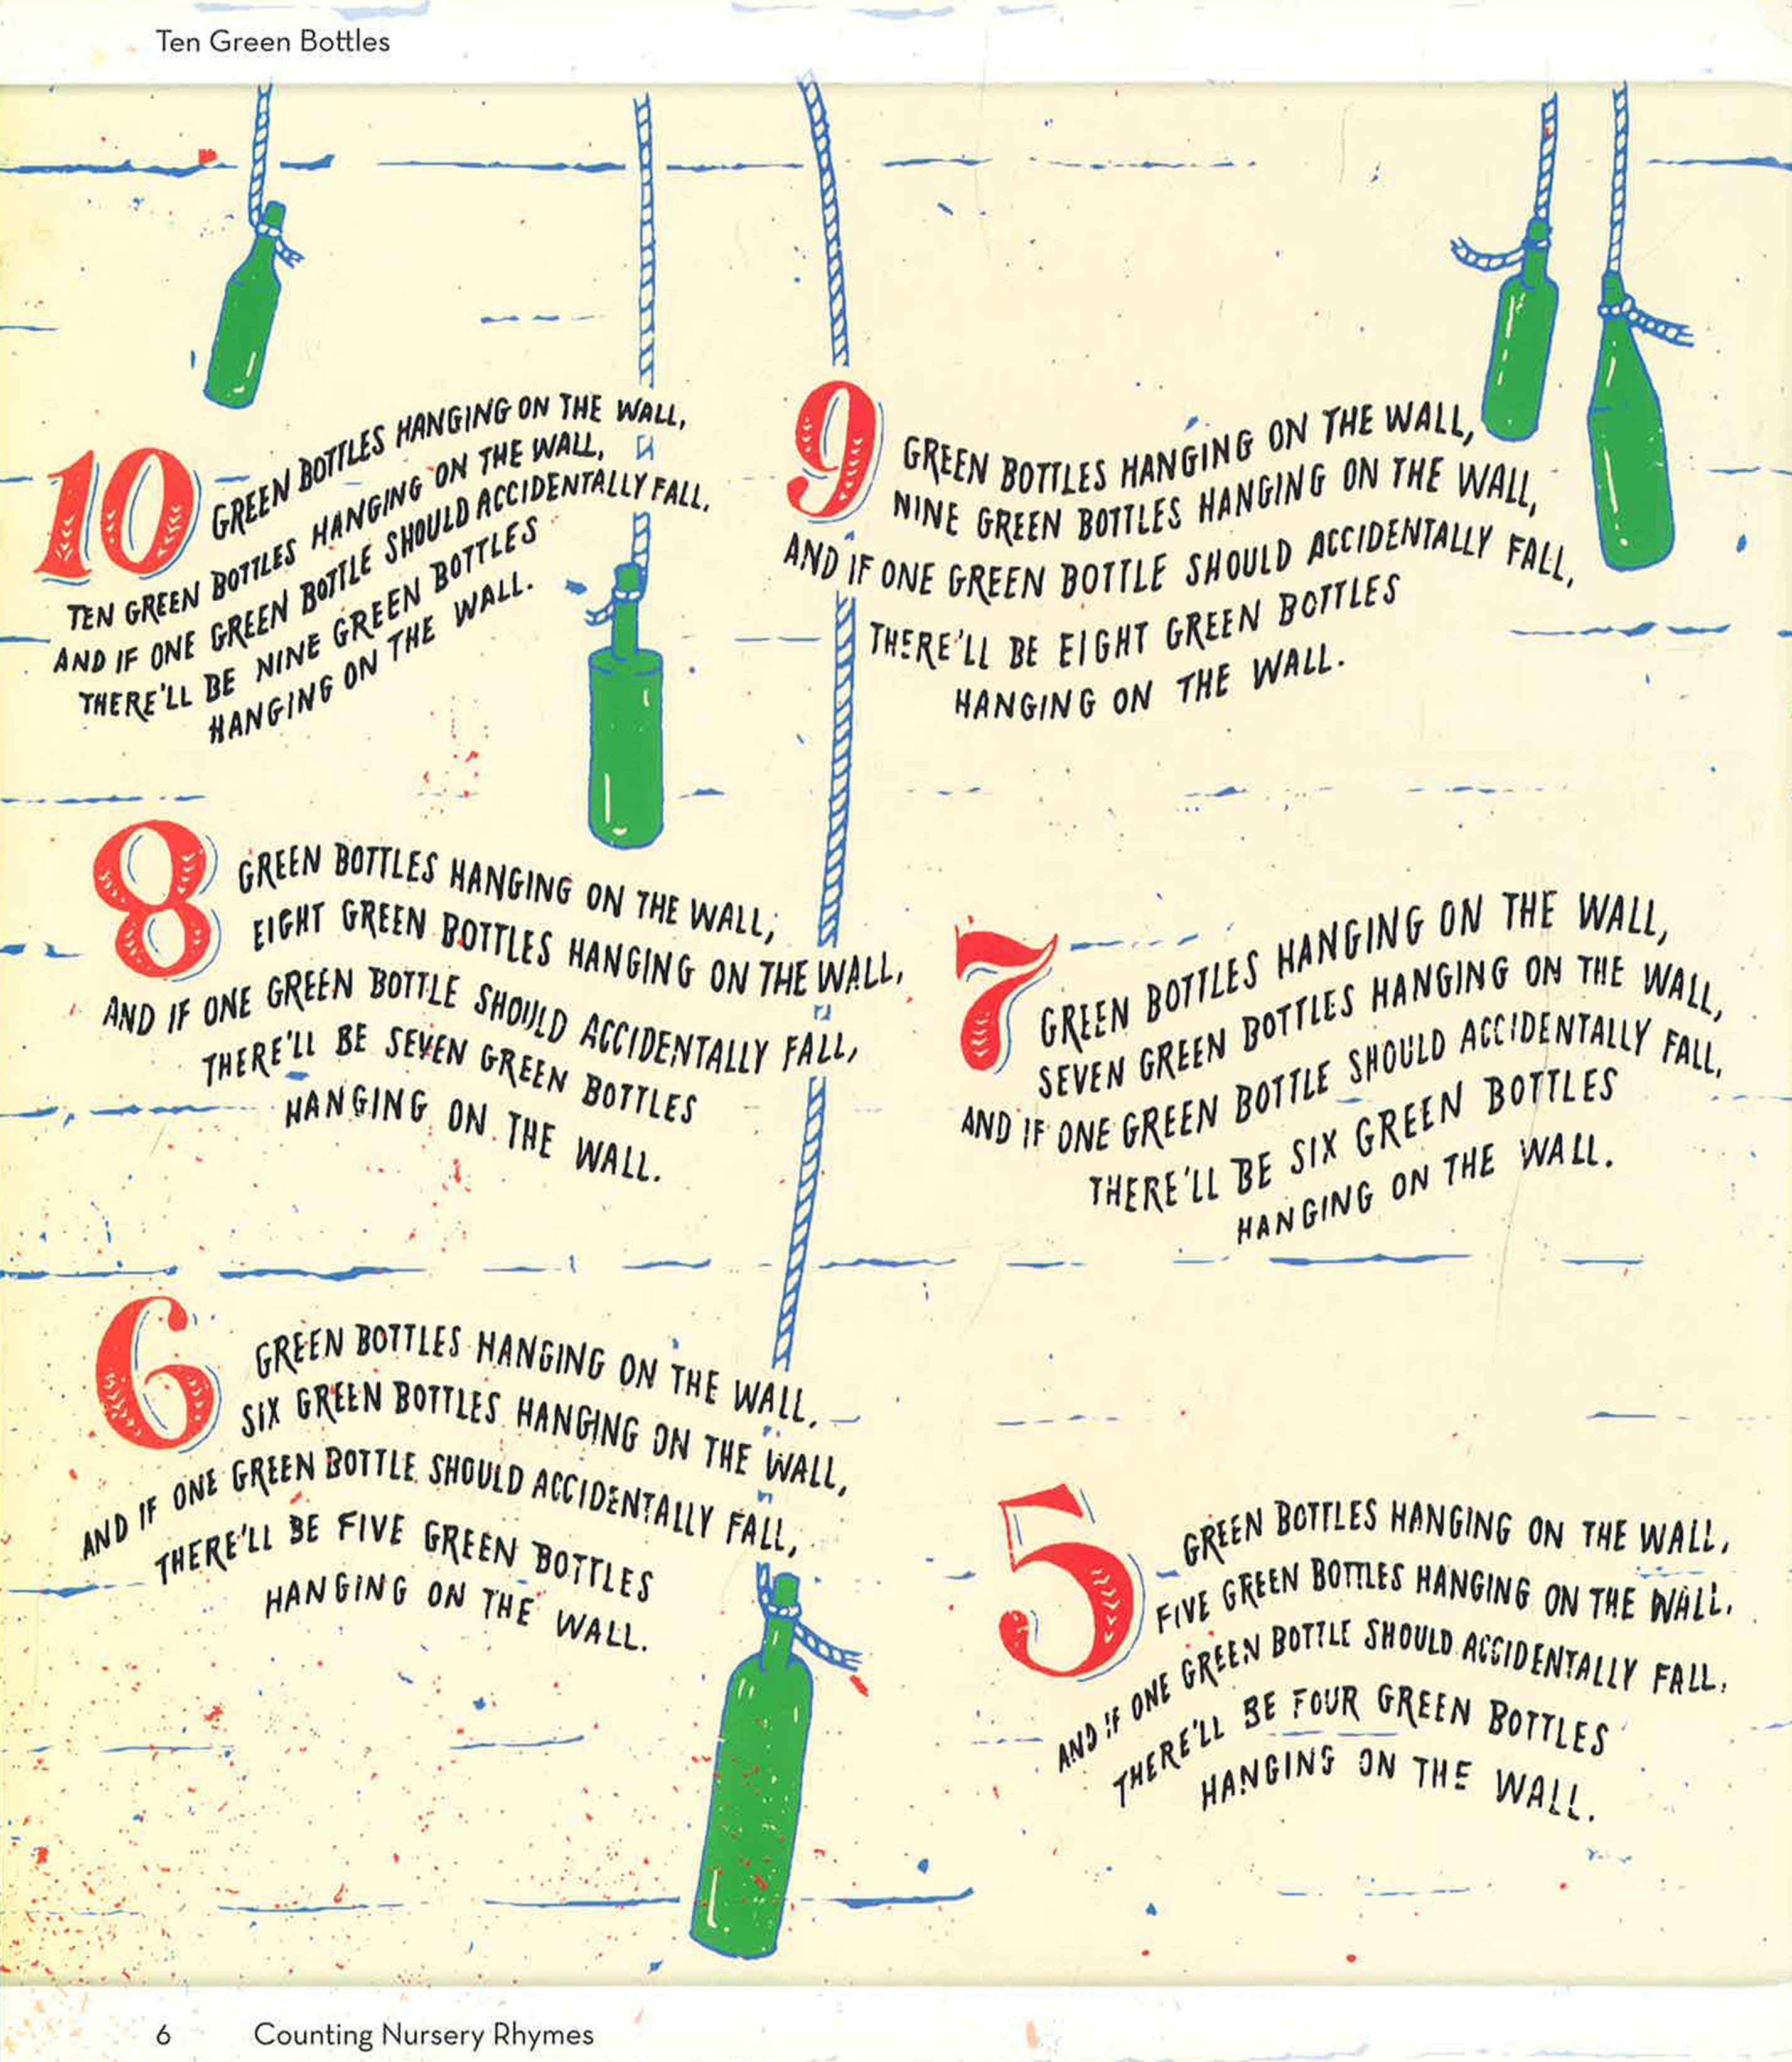 Ten Green Bottles
10 GREEN BOTTLES HANGING ON THE WALL,
TEN GREEN BOTTLES HANGING ON THE WALL,
AND IF ONE GREEN BOTTLE SHOULD ACCIDENTALLY FALL,
THERE'LL BE NINE GREEN BOTTLES
HANGING ON THE WALL.
9 GREEN BOTTLES HANGING ON THE WALL,
NINE GREEN BOTTLES HANGING ON THE WALL,
AND IF ONE GREEN BOTTLE SHOULD ACCIDENTALLY FALL,
THERE'LL BE EIGHT GREEN BOTTLES
HANGING ON THE WALL.
8 GREEN BOTTLES HANGING ON THE WALL,
EIGHT GREEN BOTTLES HANGING ON THE WALL,
AND IF ONE GREEN BOTTLE SHOULD ACCIDENTALLY FALL,
THERE'LL BE SEVEN GREEN BOTTLES
HANGING ON THE WALL.
7 GREEN BOTTLES HANGING ON THE WALL,
SEVEN GREEN BOTTLES HANGING ON THE WALL,
AND IF ONE GREEN BOTTLE SHOULD ACCIDENTALLY FALL,
THERE'LL BE SIX GREEN BOTTLES
HANGING ON THE WALL.
6 GREEN BOTTLES HANGING ON THE WALL,
SIX GREEN BOTTLES HANGING ON THE WALL,
AND IF ONE GREEN BOTTLE SHOULD ACCIDENTALLY FALL,
THERE'LL BE FIVE GREEN BOTTLES
HANGING ON THE WALL.
5 GREEN BOTTLES HANGING ON THE WALL,
FIVE GREEN BOTTLES HANGING ON THE WALL,
AND IF ONE GREEN BOTTLE SHOULD ACCIDENTALLY FALL,
THERE'LL BE FOUR GREEN BOTTLES
HANGING ON THE WALL.
6 Counting Nursery Rhymes